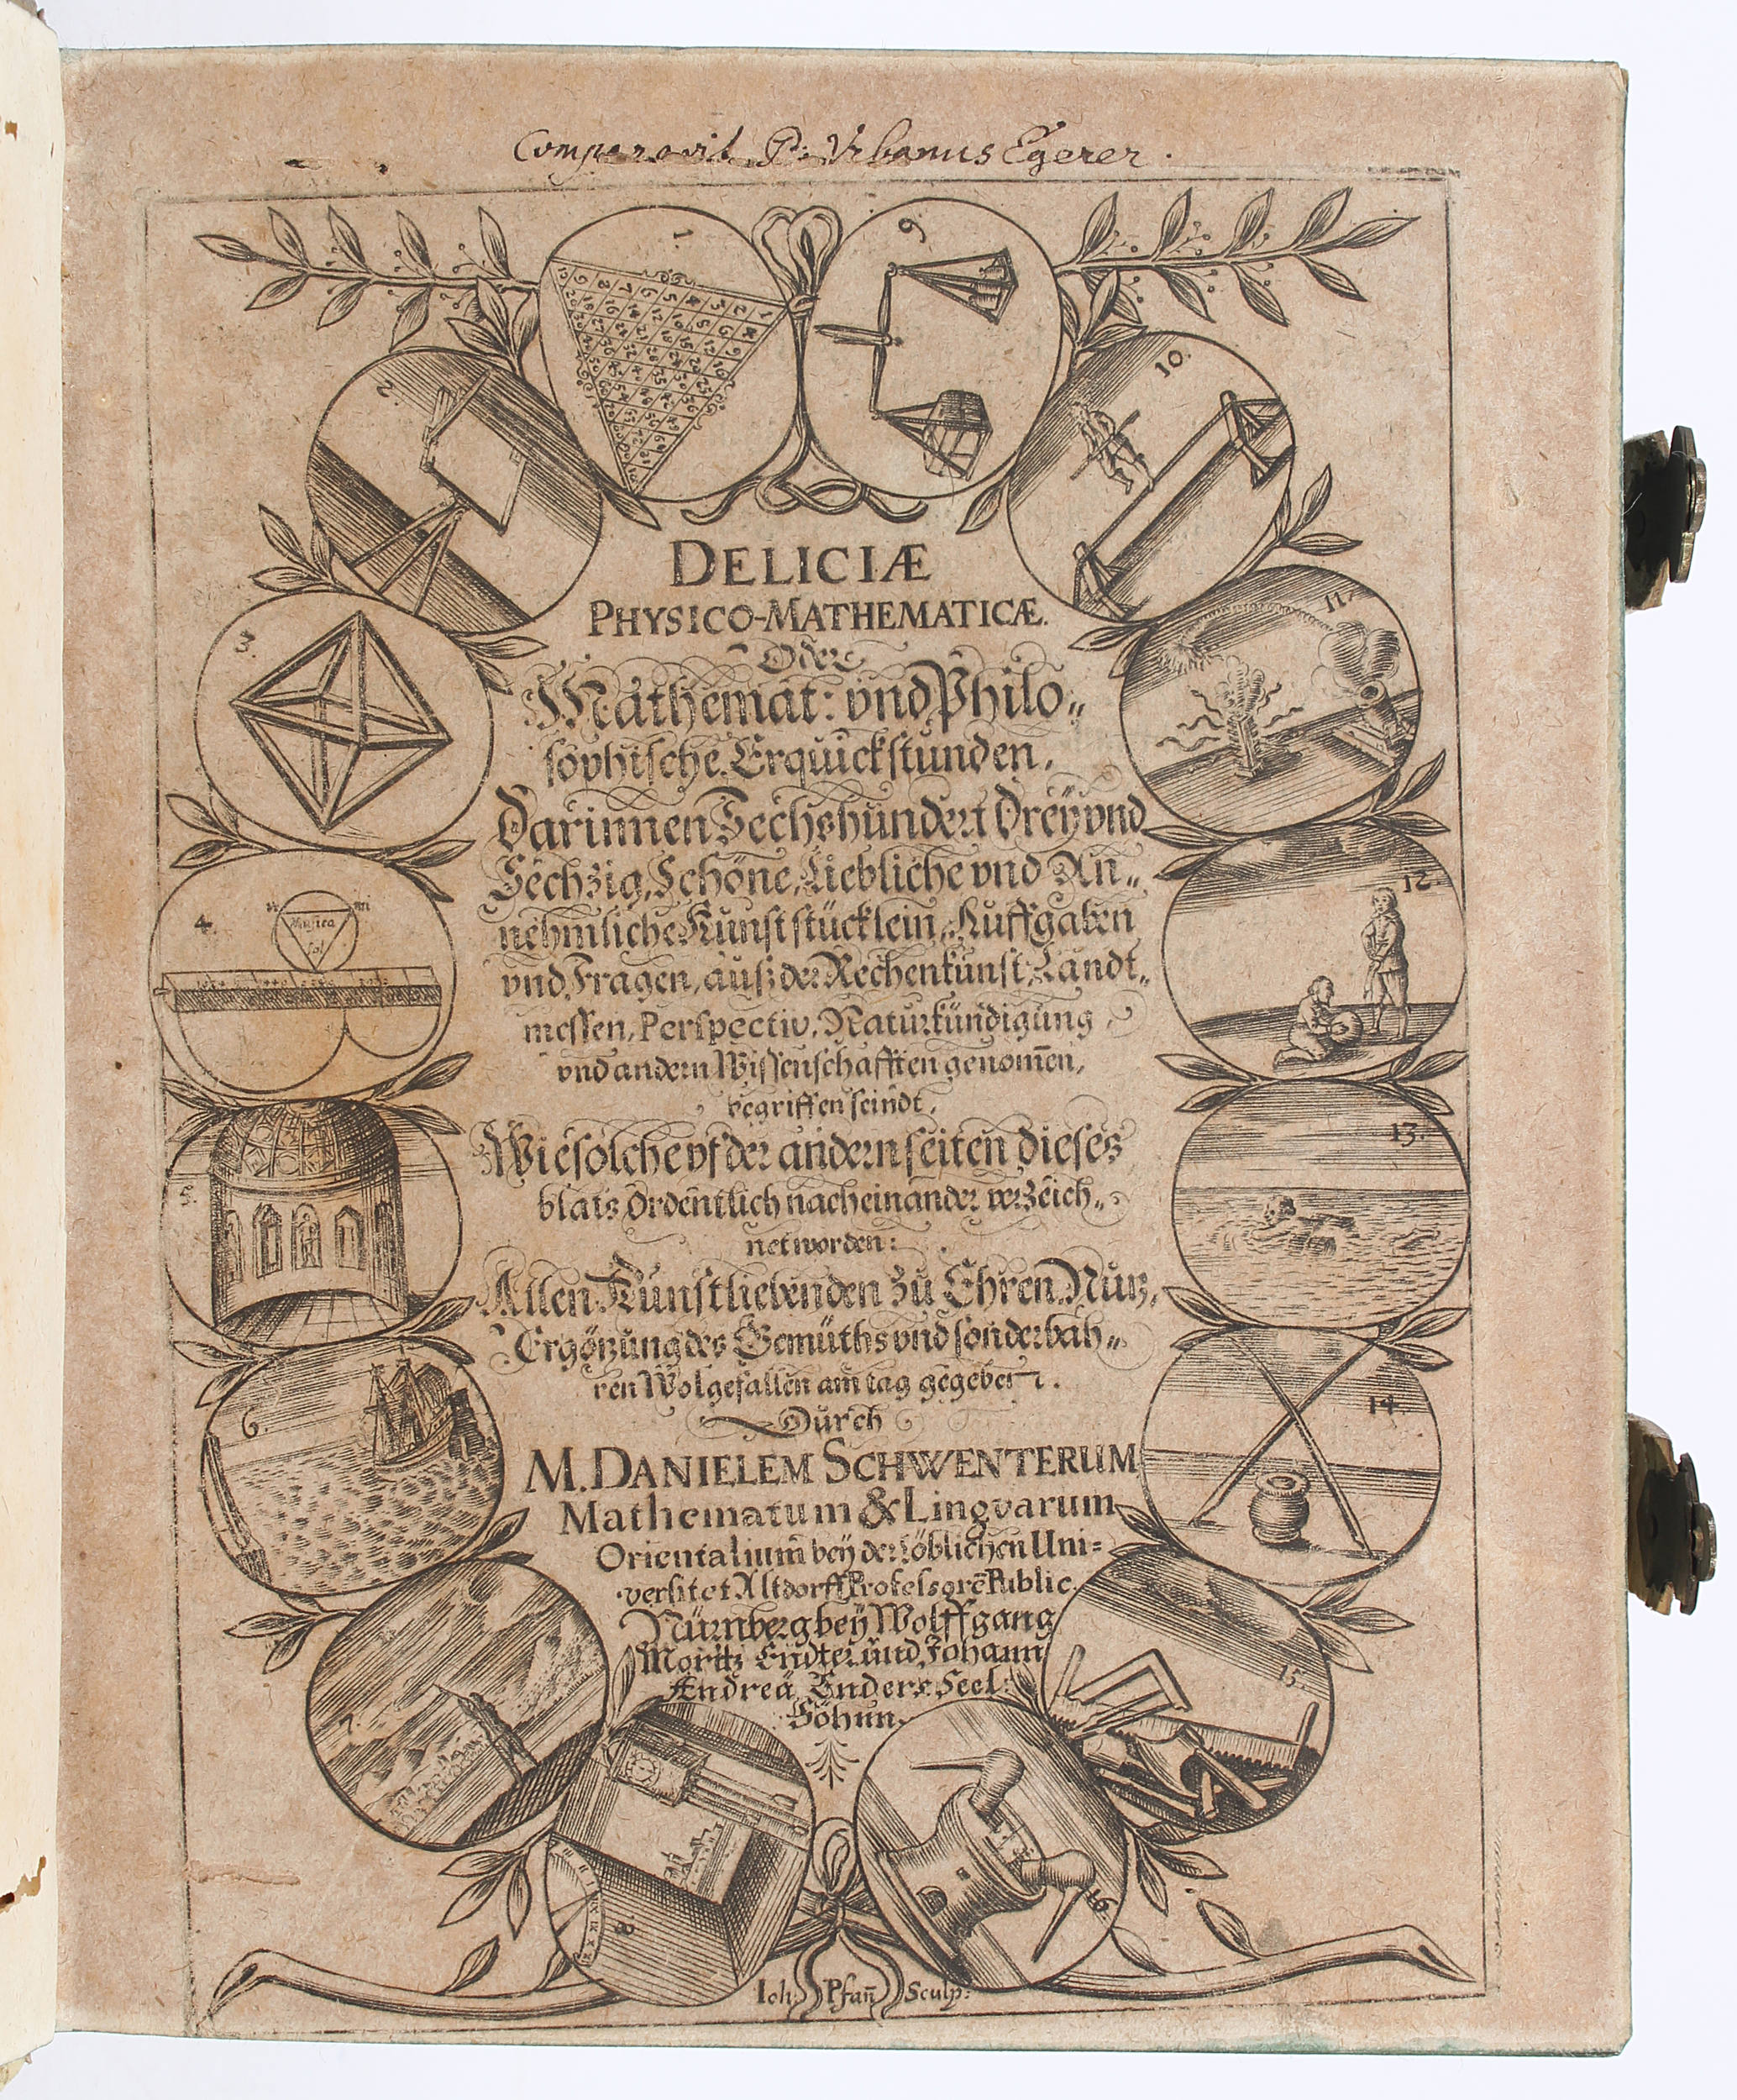 Comparavit P: Vrbanus Egerer.
1.
9
2.
10.
DELICIÆ
3.
11.
PHYSICO-MATHEMATICÆ.
Oder
Mathemat: vnd Philo„
sophische Erquickstunden,
Darinnen Sechshundert Dreÿ vnd
Sechzig, Schöne, Liebliche vnd An„
nehmliche Kunststücklein, Auffgaben
vnd Fragen, auß der Rechenkunst, Landt„
messen, Perspectiv, Naturkündigung
vnd andern Wissenschafften genomēn,
begriffen seindt,
4.
Musica
sol
mi
12
Wie solche vf der andern seiten dieses
blats Ordentlich nacheinander verzeich„
net worden:
5.
13.
Allen Kunstliebenden zu Ehren, Nutz,
Ergötzung des Gemüths vnd sonderbah„
ren Wolgefallen am tag gegeben.
Durch
6.
14.
M. DANIELEM SCHWENTERUM
Mathematum & Lingvarum
Orientalium̄ beÿ der Löblichen Uni=
versitet Altdorff Professorē Public.
Nürnberg beÿ Wolffgang
Moritz Endter und Johann
Andreä Enders Seel:
Söhnn.
7.
15.
8.
16
Ioh: Pfañ Sculp: